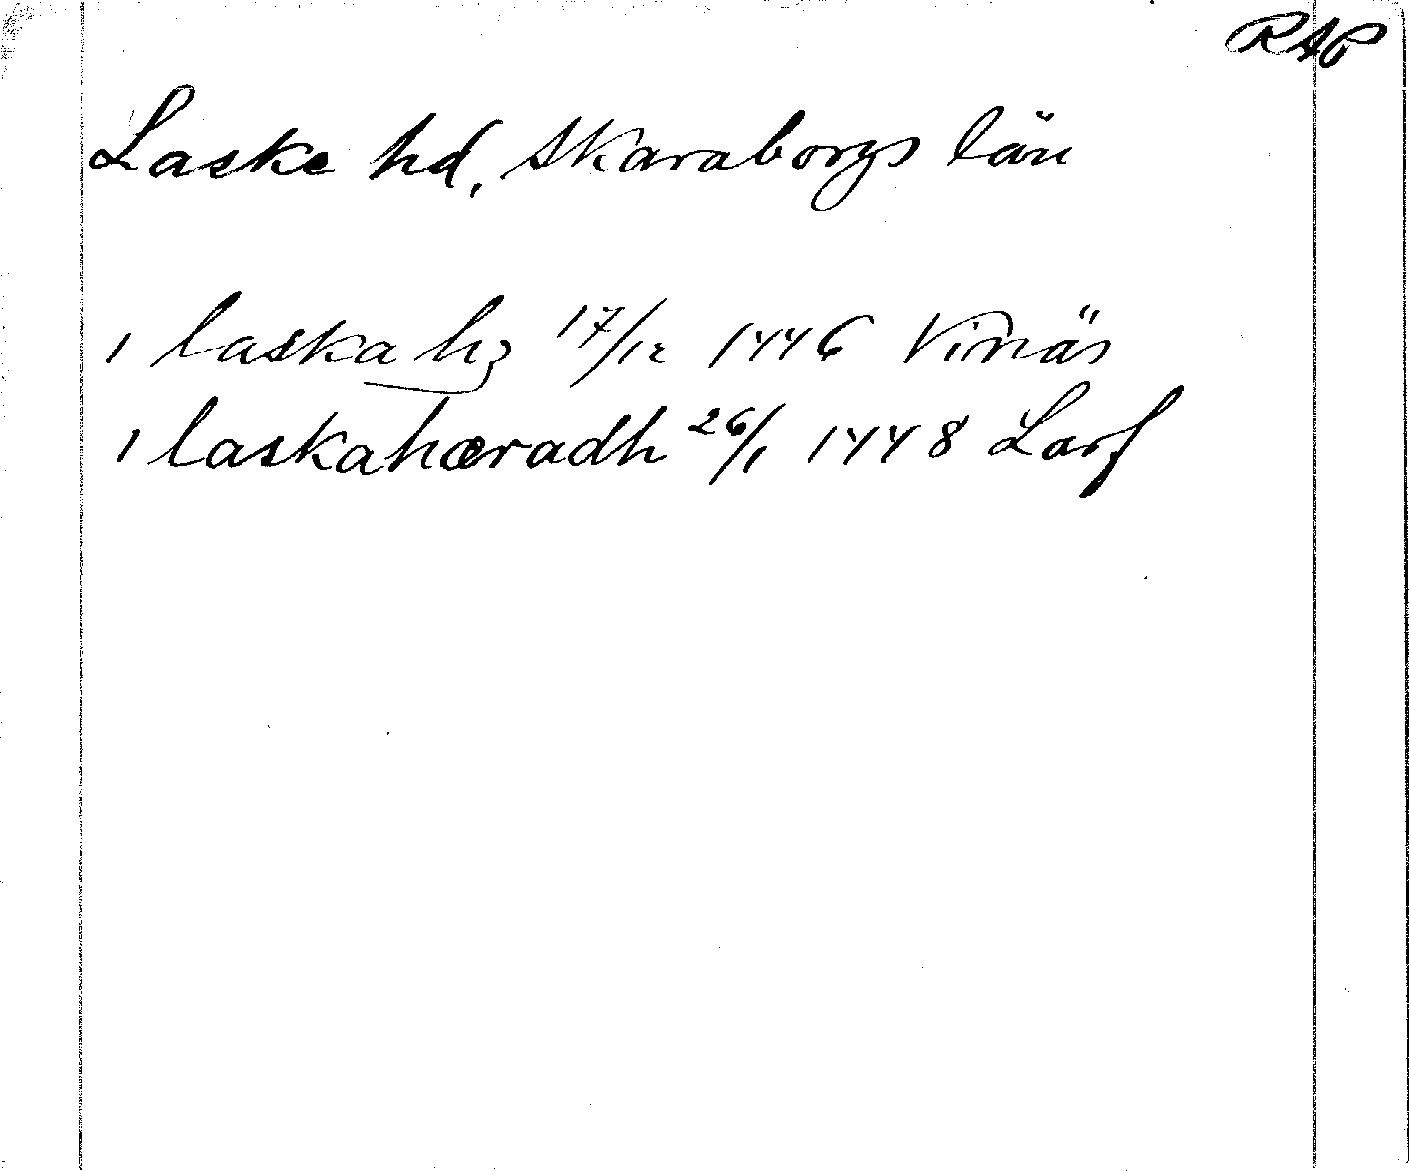 RAP
Laske hd, Skaraborgs län
i laska hz 17/12 1446 Vinäs
i laskahæradh 26/1 1448 Larf